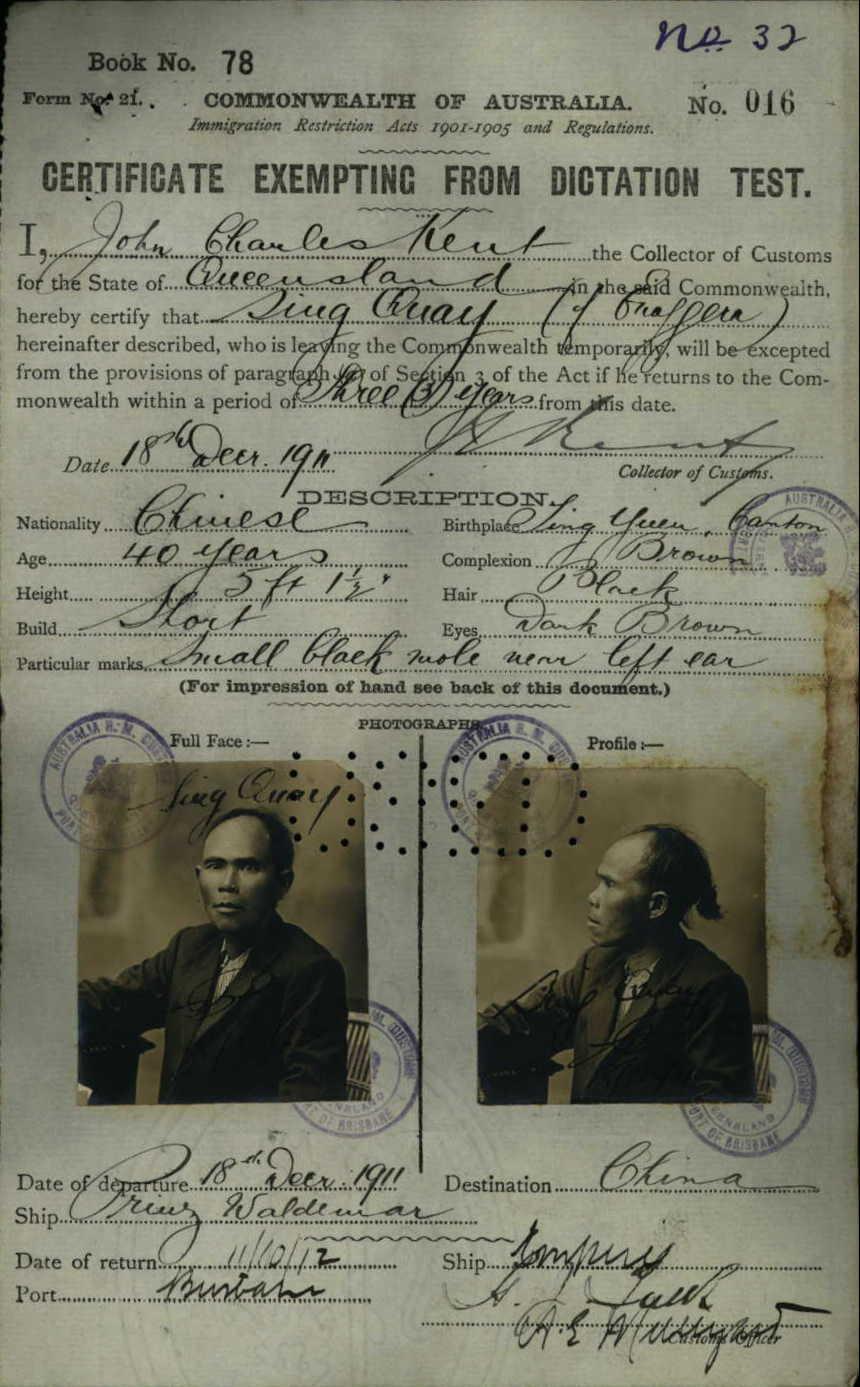 No 32
Book No. 78
Form No. 21. COMMONWEALTH OF AUSTRALIA. No. 016
Immigration Restriction Acts 1901-1905 and Regulations.
CERTIFICATE EXEMPTING FROM DICTATION TEST.
I, John Charles Kent the Collector of Customs
for the State of Queensland in the said Commonwealth,
hereby certify that Sing Quay (of Enoggera)
hereinafter described, who is leaving the Commonwealth temporarily, will be excepted
from the provisions of paragraph of Section 3 of the Act if he returns to the Com-
monwealth within a period of Three (3) years from this date.
Date 18th Decr. 1911 Kent
Collector of Customs.
DESCRIPTION.
Nationality Chinese Birthplace Sing Yuen, Canton
Age 40 years Complexion Brown
Height 5 ft 1½" Hair Black
Build Short Eyes Dark Brown
Particular marks Small black mole near left ear
(For impression of hand see back of this document.)
PHOTOGRAPHS
Full Face :— Profile :—
AUSTRALIA H. M. CUSTOMS
Sing Quay
Sing Quay
PORT OF BRISBANE
Date of departure 18th Decr. 1911 Destination China
Ship Prinz Waldemar
Date of return 11/10/12 Ship Empire
Port Brisbane
Customs Officer